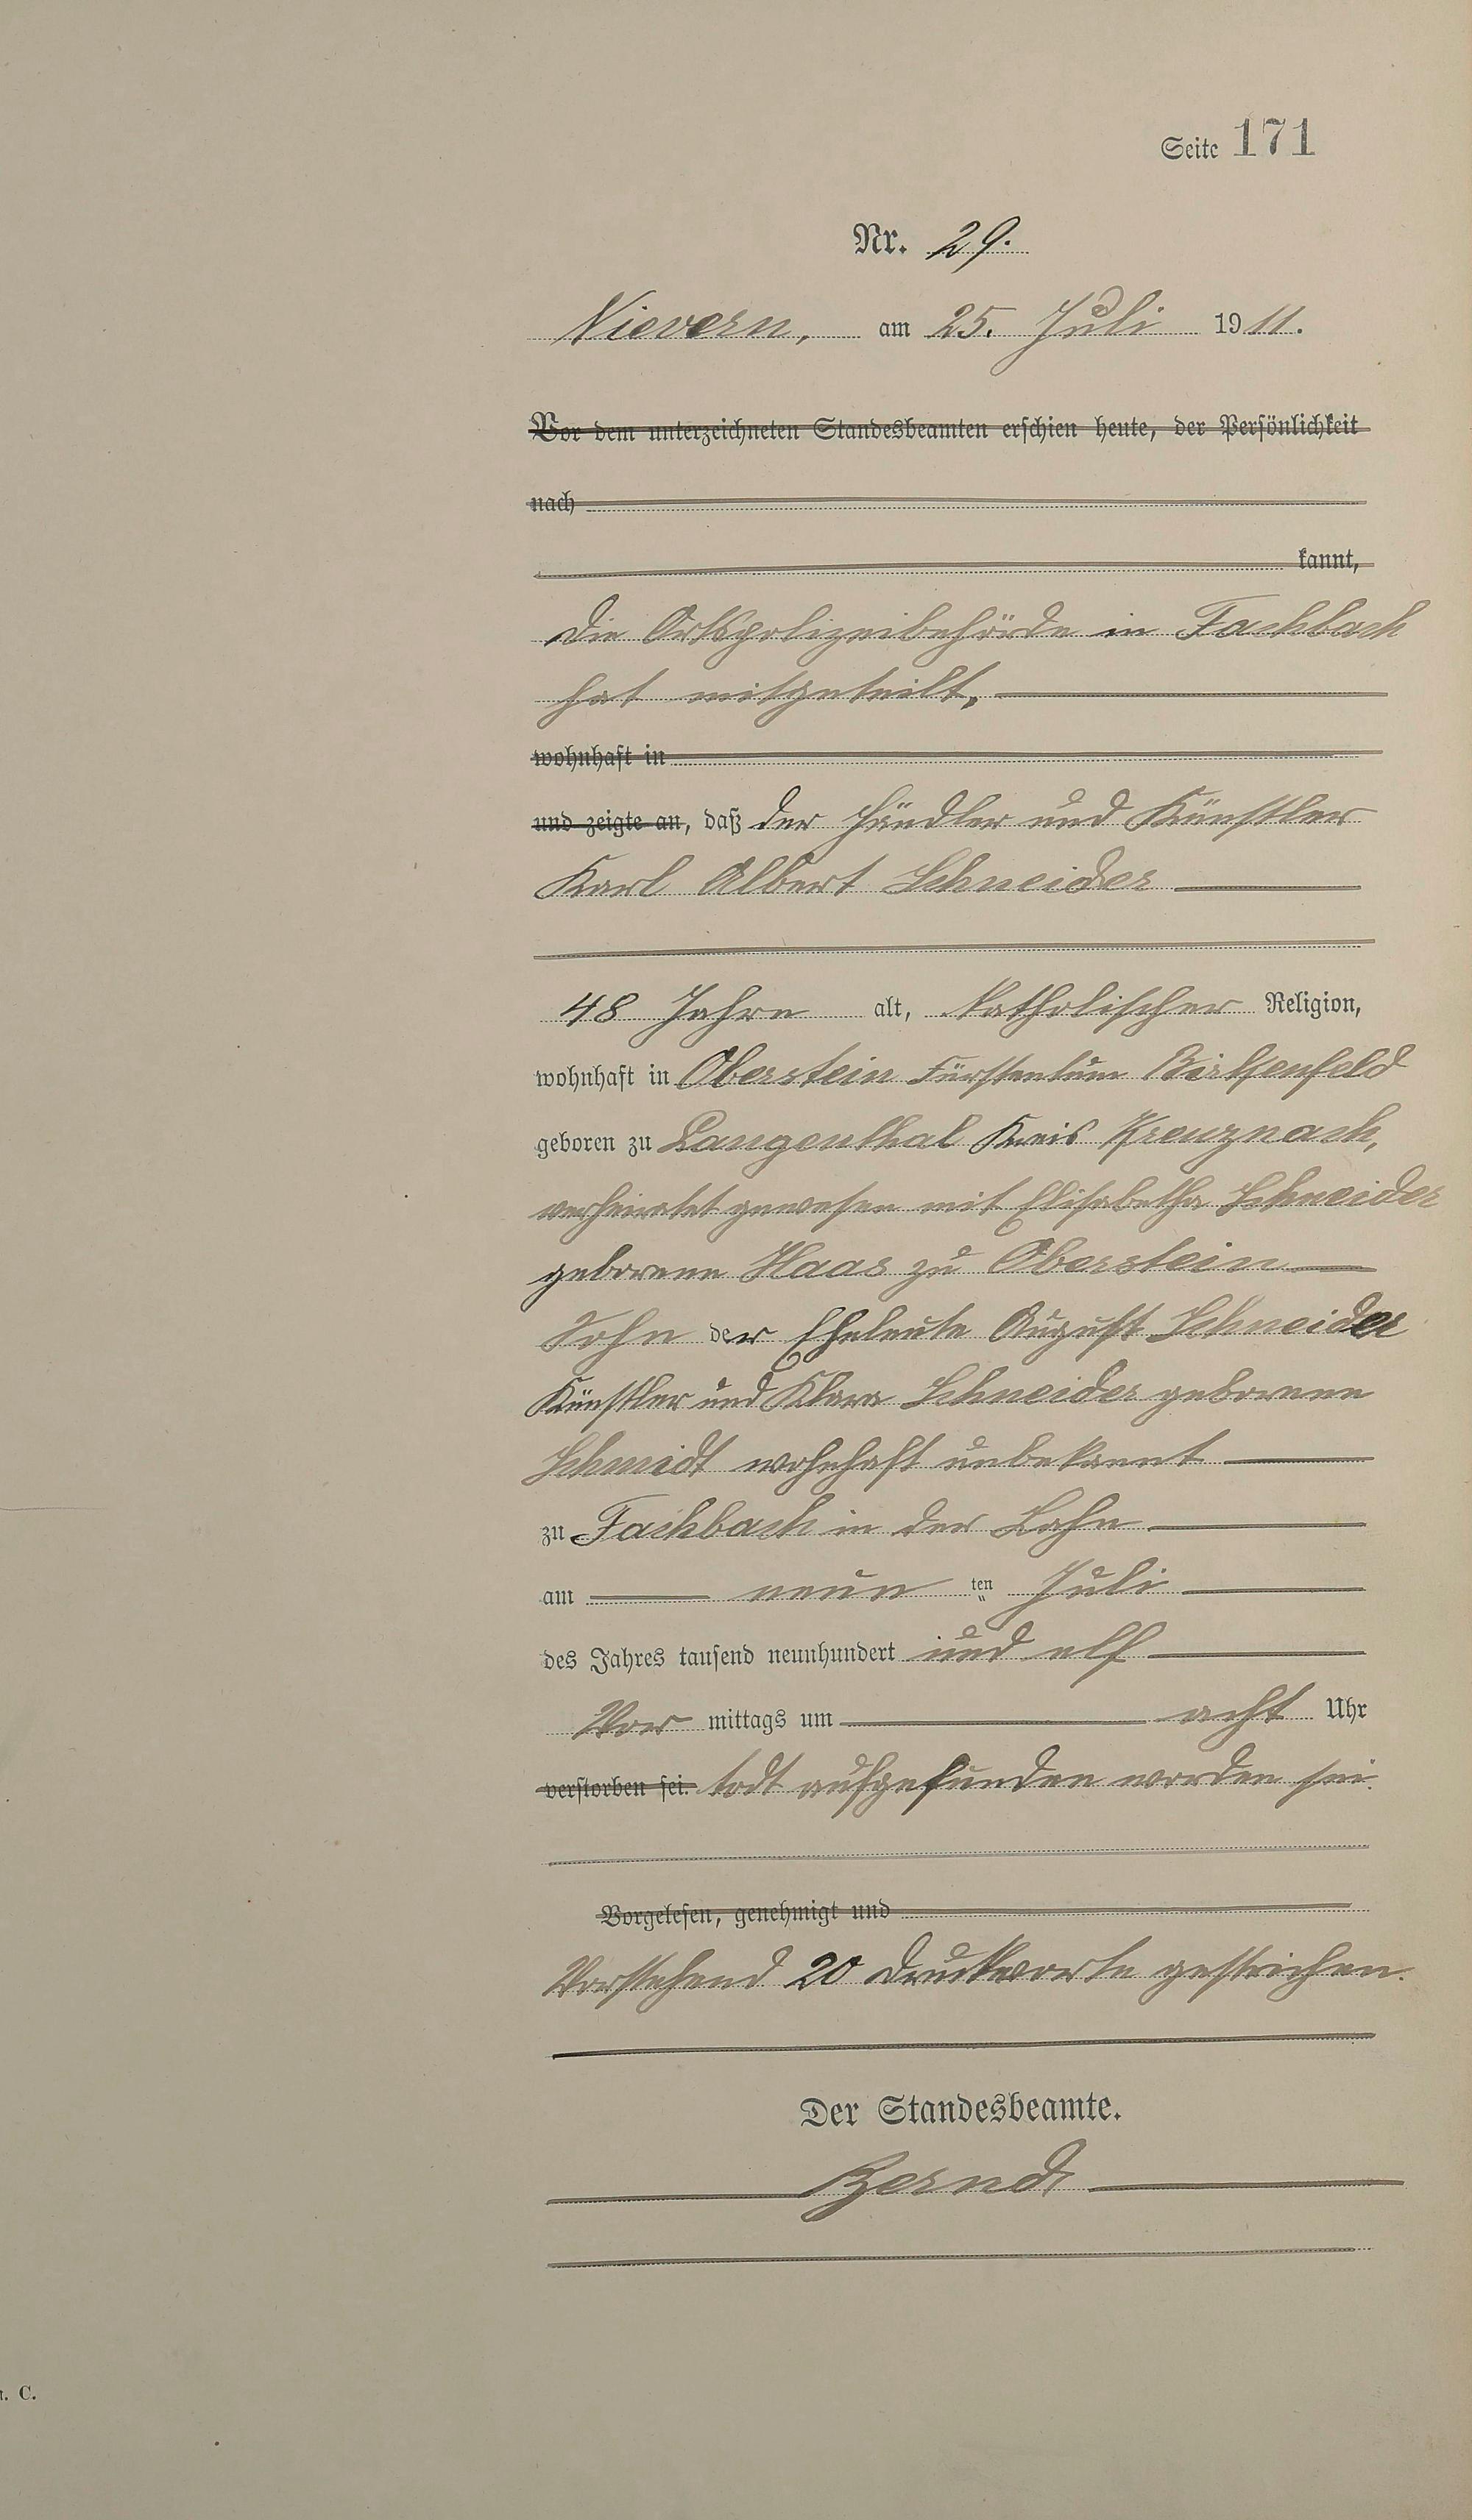 Seite 171
Nr. 29.
Nievern, am 25. Juli 1911.
Vor dem unterzeichneten Standesbeamten erschien heute, der Persönlichkeit
nach
kannt,
Die Ortspolizeibehörde in Fachbach
hat mitgeteilt,
wohnhaft in
und zeigte an, daß der Händler und Künstler
Karl Albert Schneider
48 Jahre alt, katholischer Religion,
wohnhaft in Oberstein Fürstentum Birkenfeld
geboren zu Langenthal Kreis Kreuznach,
verheiratet gewesen mit Elisabetha Schneider
geborene Haas zu Oberstein
Sohn der Eheleute August Schneider
Künstler und Klara Schneider geborene
Schmidt wohnhaft unbekannt
zu Fachbach in der Lahn
am neun ten Juli
des Jahres tausend neunhundert und elf
Vor mittags um acht Uhr
verstorben sei. todt aufgefunden worden sei.
Vorgelesen, genehmigt und
Vorstehend 20 Druckworte gestrichen.
Der Standesbeamte.
Bernd
. C.